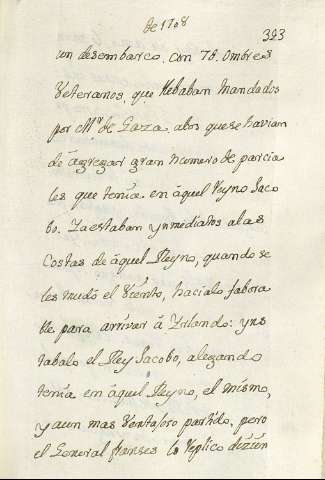 de 1708
323
un desembarco, con 7@. Ombres
Veteranos, que llebaban Mandados
por M.r de Gaza. alos que se havian
de àgregar gran numero de parcia
les que tenia. en àquel Reyno Jaco
bo. Ya estaban ynmediatos alas
Costas de àquel Reyno, quando se
les mudó el Viento, hacialo fabora
ble para arrivar à Yrlanda: yns
tabalo el Rey Jacobo, alegando
tenia en àquel Reyno, el mismo,
y aun mas Ventajoso partido, pero
el General franses lo Replico diziên